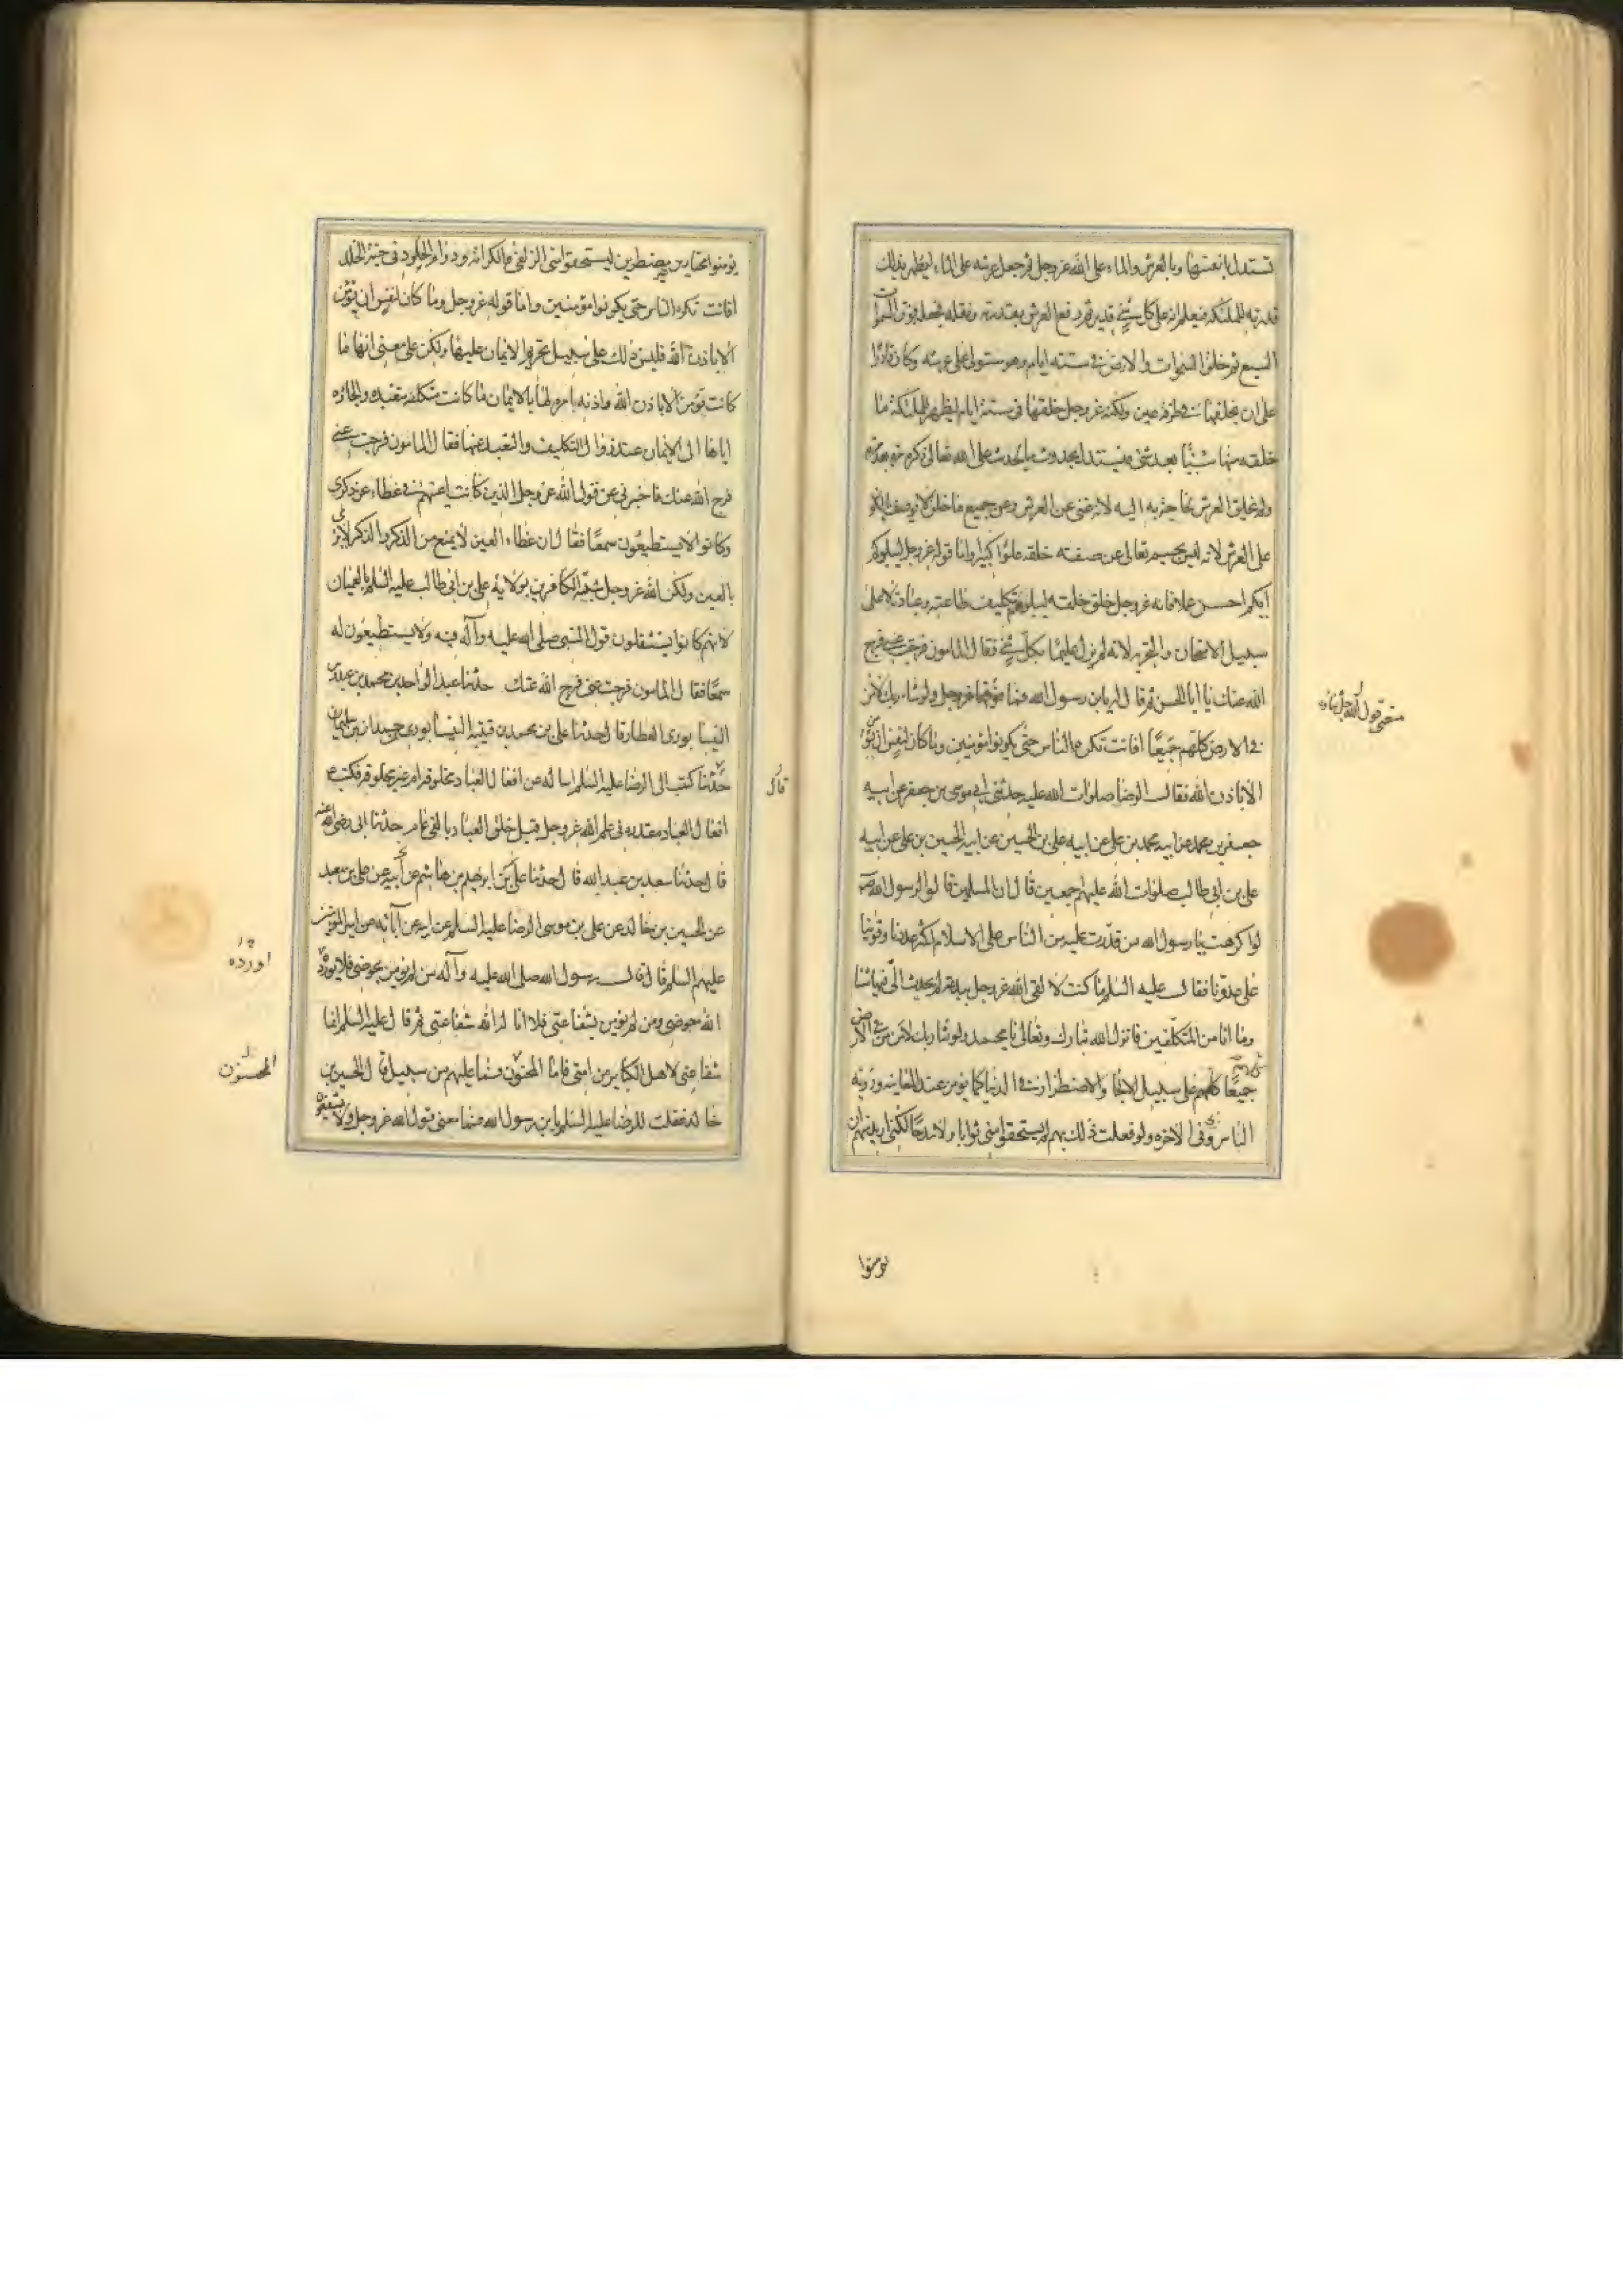 تستدل بانفسها وبالعرش والماء على الله عز وجل ثم جعل عرشه على الماء ليظهر بذلك
قدرته للملئكة فيعلم انه على كل شئ قدير ثم رفع العرش بقدرته ونقله فجعله فوق السموات
السبع ثم خلق السموات والارض فى ستة ايام وهو مستول على عرشه وكان قادرا
على ان يخلقها فى طرفة عين ولكنه عز وجل خلقها فى ستة ايام ليظهر للملئكة ما
خلقه منها شيئا بعد شئ فيستدل بحدوث ما يحدث على الله تعالى ذكره مرة بعد مرة
ولم يخلق العرش لحاجة به اليه لانه غنى عن العرش وعن جميع ما خلق لا يوصف بالكون
على العرش لانه ليس بجسم تعالى عن صفة خلقه علوا كبيرا واما قوله عز وجل ليبلوكم
ايكم احسن عملا فانه عز وجل خلق خلقه ليبلوهم بتكليف طاعته وعبادته لا على
سبيل الامتحان والتجربه لانه لم يزل عليما بكل شئ فقال المامون فرجت عنى فرج
الله عنك يا ابا الحسن ثم قال له يابن رسول الله فما عز وجل ولو شاء ربك لامن
معنى قول الله جل ثناؤه
فى الارض كلهم جميعا افانت تكره الناس حتى يكونوا مؤمنين وما كان لنفس ان تؤمن
الا باذن الله فقال الرضا صلوات الله عليه حدثنى ابى موسى بن جعفر عن ابيه
جعفر بن محمد عن ابيه محمد بن على عن ابيه على بن الحسين عن ابيه الحسين بن على عن ابيه
على بن ابى طالب صلوات الله عليهم اجمعين قال ان المسلمين قالوا لرسول الله ص
لو اكرهت يا رسول الله من قدرت عليه من الناس على الاسلام لكثر عددنا وقوينا
على عدونا فقال عليه السلم ما كنت لالقى الله عز وجل ببدعة لم يحدث الى فيها شيئا
وما انا من المتكلفين فانزل الله تبارك وتعالى يا محمد ولو شاء ربك لامن من فى الارض
جميعا كلهم على سبيل الالجاء والاضطرار فى الدنيا كما يومن عند المعاينه ورؤية
الناس وفى الاخره ولو فعلت ذلك بهم لم يستحقوا منى ثوابا ولا مدحا لكنى اريد منهم ان
يومنوا
يومنوا مختارين غير مضطرين ليستحقوا منى الزلفى والكرامه ودوام الخلود فى جنة الخلد
افانت تكره الناس حتى يكونوا مؤمنين واما قوله عز وجل وما كان لنفس ان تؤمن
الا باذن الله فليس ذلك على سبيل تحريم الايمان عليها ولكن على معنى انها ما
كانت تؤمن الا باذن الله واذنه امره لها بالايمان ما كانت متكلفه متعبده والجاؤه
اياها الى الايمان عند زوال التكليف والتعبد عنها فقال المامون فرجت عنى
فرج الله عنك فاخبرنى عن قول الله عز وجل الذين كانت اعينهم فى غطاء عن ذكرى
وكانوا لا يستطيعون سمعا فقال ان غطاء العين لا يمنع من الذكر والذكر لا يرى
بالعين ولكن الله عز وجل شبه الكافرين بولاية على بن ابى طالب عليه السلم بالعميان
لانهم كانوا يستثقلون قول النبى صلى الله عليه وآله فيه ولا يستطيعون له
سمعا فقال المامون فرجت عنى فرج الله عنك حدثنا عبد الواحد بن محمد بن عبدوس
النيسابورى العطار قال حدثنا على بن محمد بن قتيبه النيسابورى عن حمدان بن سليمان
قال
كتبت الى الرضا عليه السلم اساله عن افعال العباد مخلوقه ام غير مخلوقه فكتب ع
افعال العباد مقدره فى علم الله عز وجل قبل خلق العباد بالفى عام حدثنا ابى رضى الله عنه
قال حدثنا سعد بن عبد الله قال حدثنا على بن ابراهيم بن هاشم عن ابيه عن على بن معبد
عن الحسين بن خالد عن على بن موسى الرضا عليه السلم عن ابيه عن آبائه عن امير المؤمنين
عليهم السلم قال قال رسول الله صلى الله عليه وآله من لم يؤمن بحوضى فلا يورده
اورده
الله حوضى ومن لم يؤمن بشفاعتى فلا اناله الله شفاعتى ثم قال عليه السلم انما
شفاعتى لاهل الكبائر من امتى فاما المحسنون فما عليهم من سبيل قال الحسين بن
المحسنون
خالد فقلت للرضا عليه السلم يابن رسول الله فما معنى قول الله عز وجل ولا يشفعون